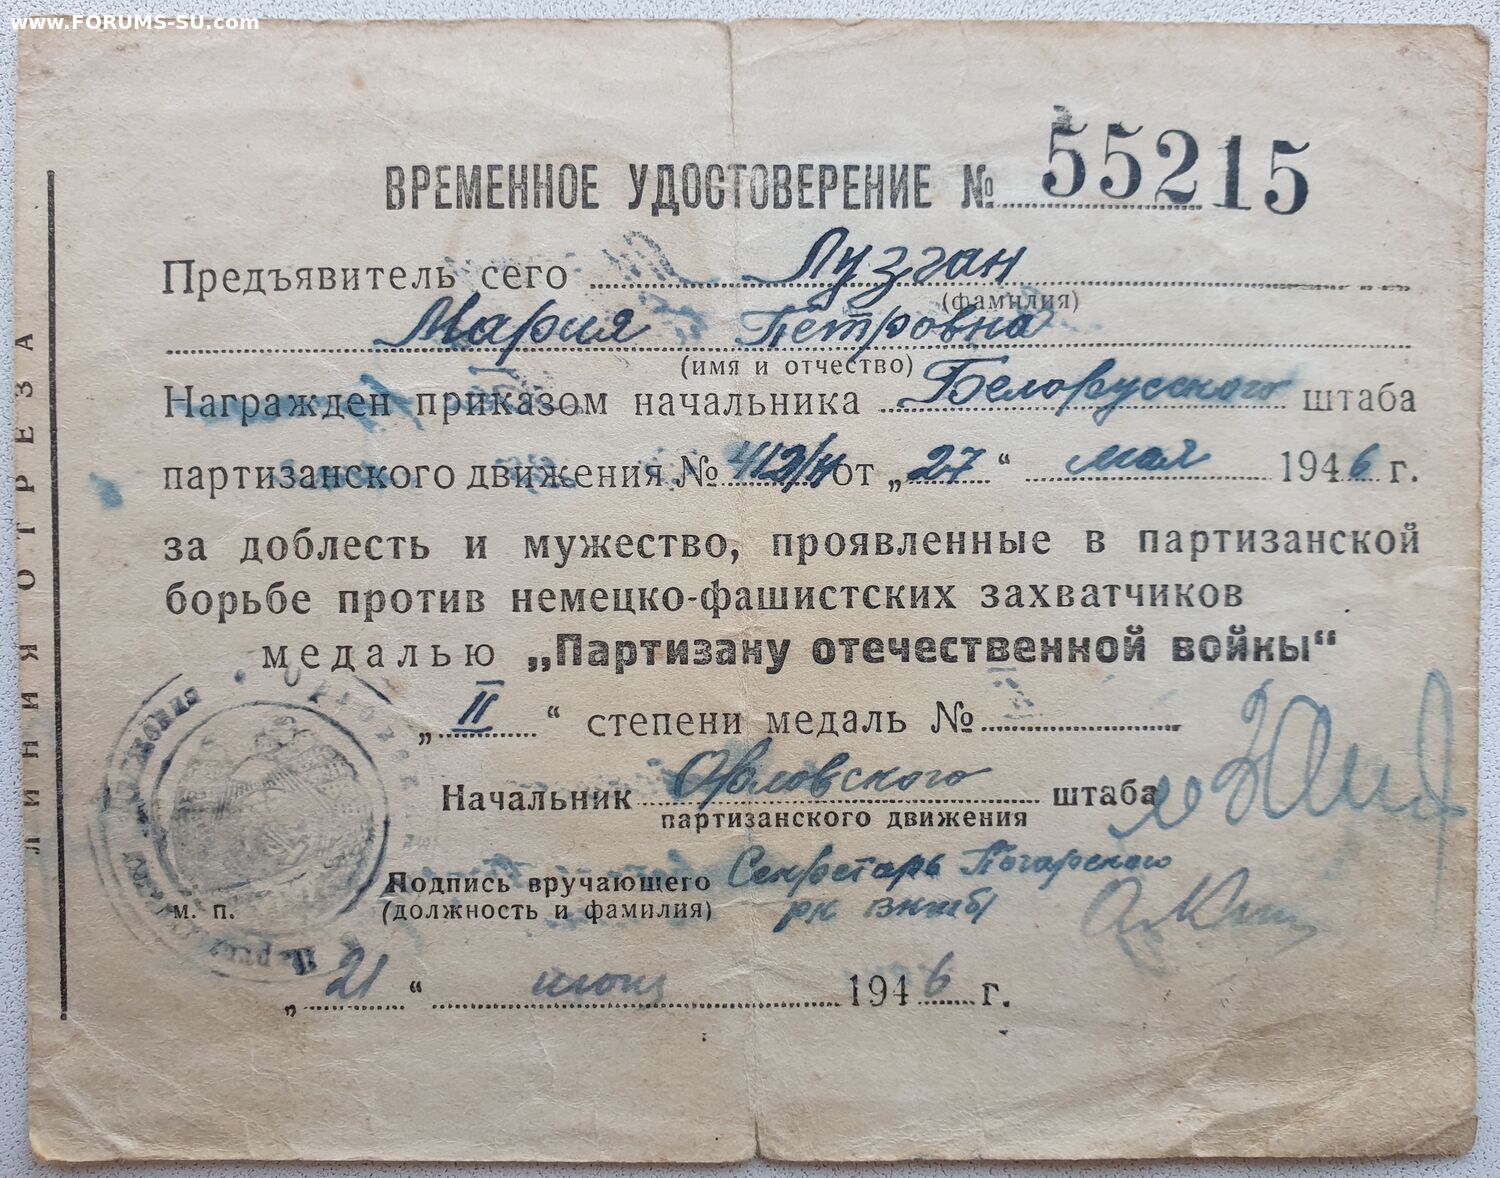 www.FORUMS-SU.com
ВРЕМЕННОЕ УДОСТОВЕРЕНИЕ № 55215
Предъявитель сего Лузган
(фамилия)
Мария Петровна
(имя и отчество)
Награжден приказом начальника Белорусского штаба
партизанского движения № от „27“ мая 1946 г.
за доблесть и мужество, проявленные в партизанской
борьбе против немецко-фашистских захватчиков
медалью „Партизану отечественной войны“
„II“ степени медаль №
Начальник Орловского штаба
партизанского движения
Подпись вручающего Секретарь Погарского
(должность и фамилия) рк вкп(б)
м. п.
„21“ 1946 г.
ЛИНИЯ ОТРЕЗА